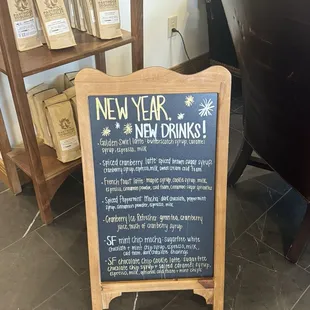 NEW YEAR,
NEW DRINKS!
-Golden Swirl latte- butterscotch syrup, caramel
syrup, espresso, milk
-spiced cranberry latte- spiced brown sugar syrup,
cranberry syrup, espresso, milk, sweet cream cold foam
-French toast latte- maple syrup, cookie syrup, milk,
espresso, cinnamon powder, cold foam, cinnamon sugar sprinkles
-Spiced Peppermint Mocha- dark chocolate, peppermint
syrup, cinnamon powder, espresso, milk
-Cranberry Ice Refresher- green tea, cranberry
juice, splash of cranberry syrup
-SF mint chip mocha- sugarfree white
chocolate + mint chip syrup, espresso, milk,
cold foam, dark chocolate shavings
-SF chocolate chip cookie latte- sugarfree
chocolate chip syrup + salted caramel syrup,
espresso, milk